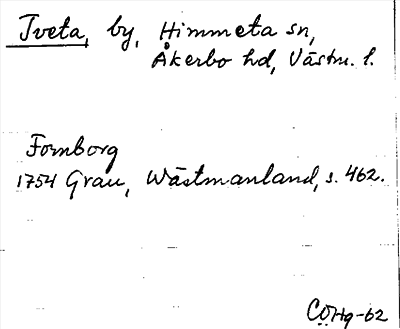 Tveta, by, Himmeta sn,
Åkerbo hd, Västm. l.
Fornborg
1754 Grau, Wästmanland, s. 462.
CÖHg-62